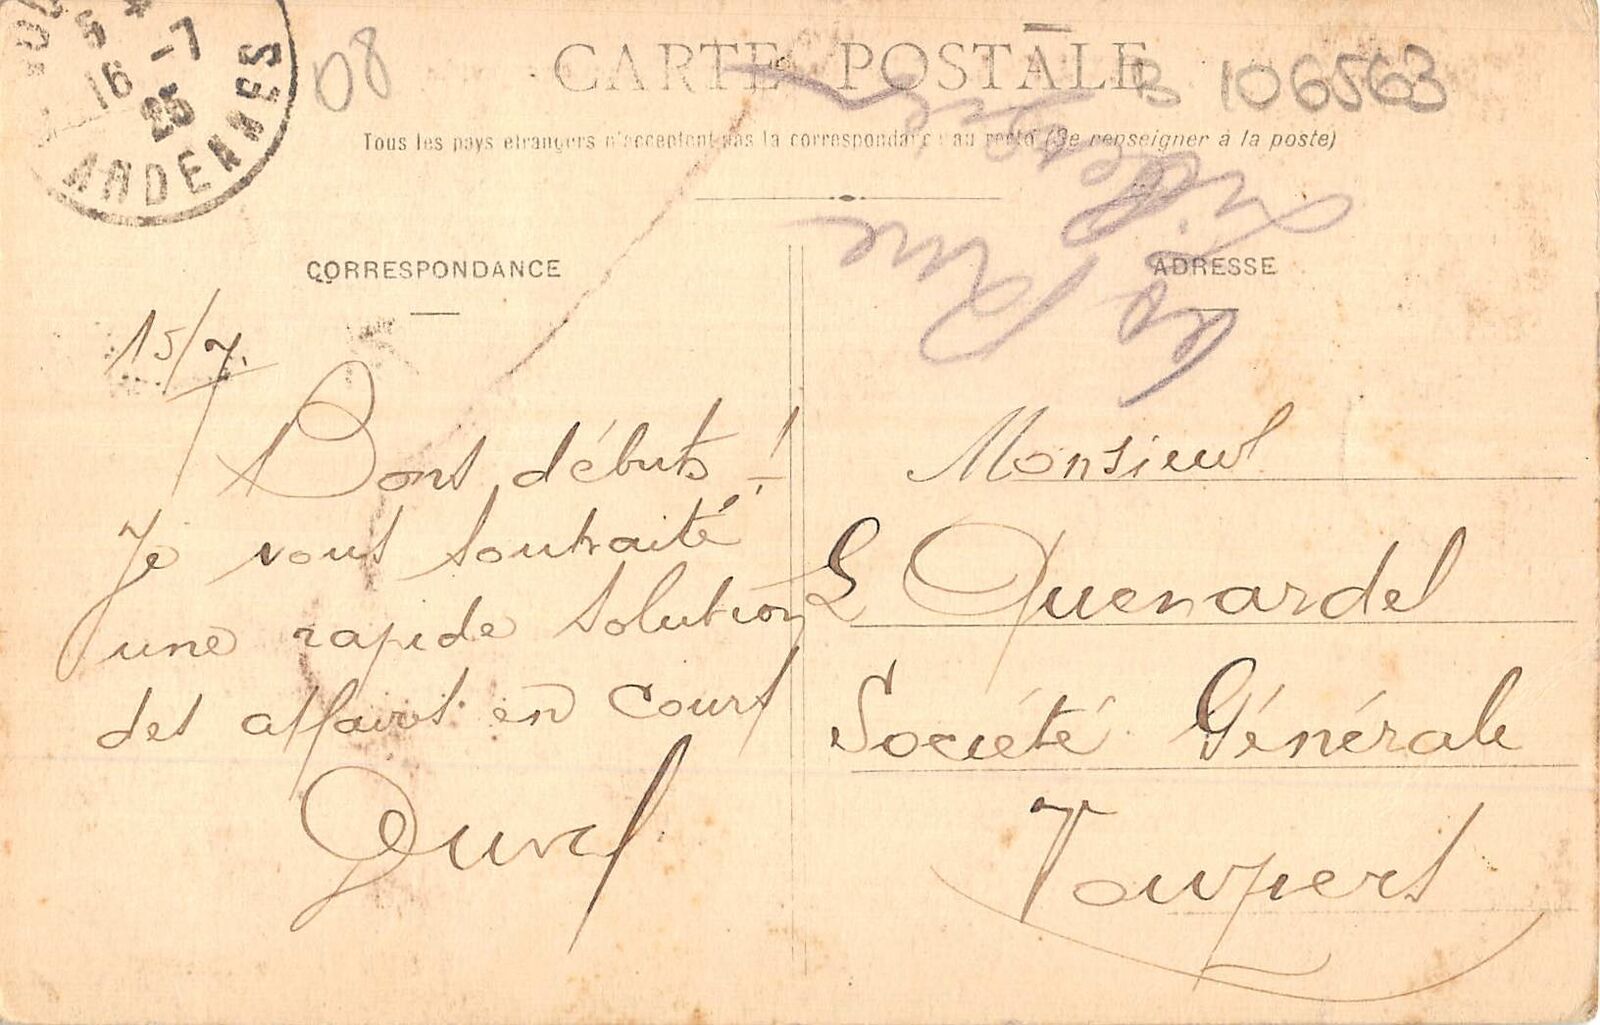 5
16 -7
25
ARDENNES
08
CARTE POSTALE
B 106563
Tous les pays etrangers n'acceptent pas la correspondance au recto (Se renseigner à la poste)
CORRESPONDANCE
15/7.
Bons débuts !
Je vous souhaité
une rapide solution
des affaires en cours
Duval
ADRESSE
Monsieur
L Quenardel
Société Générale